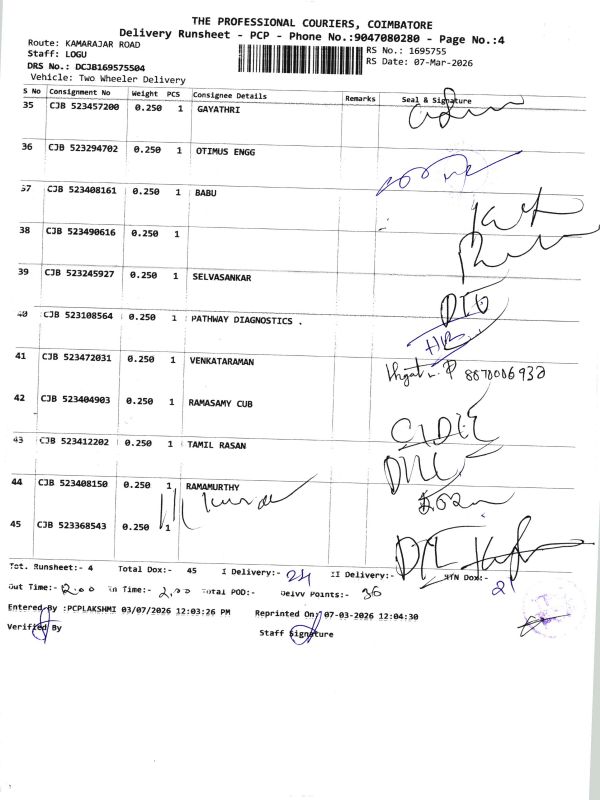 THE PROFESSIONAL COURIERS, COIMBATORE
Delivery Runsheet - PCP - Phone No.:9047080280 - Page No.:4
Route: KAMARAJAR ROAD
Staff: LOGU
DRS No.: DCJB169575504
Vehicle: Two Wheeler Delivery
RS No.: 1695755
RS Date: 07-Mar-2026
S No Consignment No Weight PCS Consignee Details Remarks Seal & Signature
35 CJB 523457200 0.250 1 GAYATHRI
36 CJB 523294702 0.250 1 OTIMUS ENGG
37 CJB 523408161 0.250 1 BABU
38 CJB 523490616 0.250 1
39 CJB 523245927 0.250 1 SELVASANKAR
40 CJB 523108564 0.250 1 PATHWAY DIAGNOSTICS .
41 CJB 523472031 0.250 1 VENKATARAMAN
8870006930
42 CJB 523404903 0.250 1 RAMASAMY CUB
43 CJB 523412202 0.250 1 TAMIL RASAN
44 CJB 523408150 0.250 1 RAMAMURTHY
45 CJB 523368543 0.250 1
Tot. Runsheet:- 4 Total Dox:- 45 I Delivery:- 24 II Delivery:- RTN Dox:- 21
Out Time:- 12.00 In Time:- 2.00 Total POD:- Delvv Points:- 36
Entered By :PCPLAKSHMI 03/07/2026 12:03:26 PM Reprinted On: 07-03-2026 12:04:30
Verified By Staff Signature